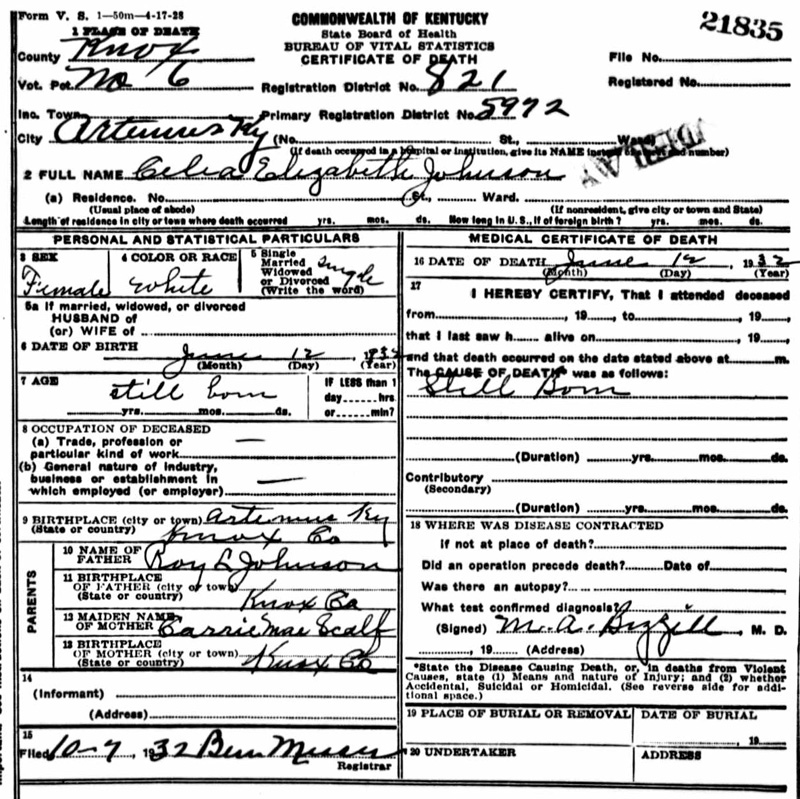 Form V. S. 1-50m-4-17-28
COMMONWEALTH OF KENTUCKY
State Board of Health
BUREAU OF VITAL STATISTICS
CERTIFICATE OF DEATH
21835
1 PLACE OF DEATH
County Knox
File No.
Vot. Pct. No 6
Registration District No. 821
Registered No.
Inc. Town
Primary Registration District No. 5972
City Artemus Ky (No. St., Ward)
(If death occurred in a hospital or institution, give its NAME instead of street and number)
2 FULL NAME Celia Elizabeth Johnson
(a) Residence. No. St., Ward.
(Usual place of abode) (If nonresident, give city or town and State)
Length of residence in city or town where death occurred yrs. mos. ds. How long in U. S., if of foreign birth? yrs. mos. ds.
PERSONAL AND STATISTICAL PARTICULARS
3 SEX Female
4 COLOR OR RACE White
5 Single Married Widowed or Divorced (Write the word) Single
5a If married, widowed, or divorced
HUSBAND of
(or) WIFE of
6 DATE OF BIRTH June 12, 1932
(Month) (Day) (Year)
7 AGE still born
yrs. mos. ds.
IF LESS than 1
day hrs
or min?
8 OCCUPATION OF DECEASED
(a) Trade, profession or
particular kind of work —
(b) General nature of industry,
business or establishment in
which employed (or employer) —
9 BIRTHPLACE (city or town) Artemus Ky
(State or country) Knox Co
PARENTS
10 NAME OF
FATHER Roy L Johnson
11 BIRTHPLACE
OF FATHER (city or town)
(State or country) Knox Co
12 MAIDEN NAME
OF MOTHER Carrie Mae Scalf
13 BIRTHPLACE
OF MOTHER (city or town)
(State or country) Knox Co
14
(Informant)
(Address)
15
Filed 10-7, 1932
Registrar
MEDICAL CERTIFICATE OF DEATH
16 DATE OF DEATH June 12 1932
(Month) (Day) (Year)
17
I HEREBY CERTIFY, That I attended deceased
from , 19 , to , 19 ,
that I last saw h alive on , 19 ,
and that death occurred on the date stated above at m.
The CAUSE OF DEATH* was as follows:
Still Born
(Duration) yrs. mos. ds.
Contributory
(Secondary)
(Duration) yrs. mos. ds.
18 WHERE WAS DISEASE CONTRACTED
if not at place of death?
Did an operation precede death? Date of
Was there an autopsy?
What test confirmed diagnosis?
(Signed) M. A. , M. D.
, 19 (Address)
*State the Disease Causing Death, or, in deaths from Violent
Causes, state (1) Means and nature of Injury; and (2) whether
Accidental, Suicidal or Homicidal. (See reverse side for addi-
tional space.)
19 PLACE OF BURIAL OR REMOVAL
DATE OF BURIAL
, 19
20 UNDERTAKER
ADDRESS